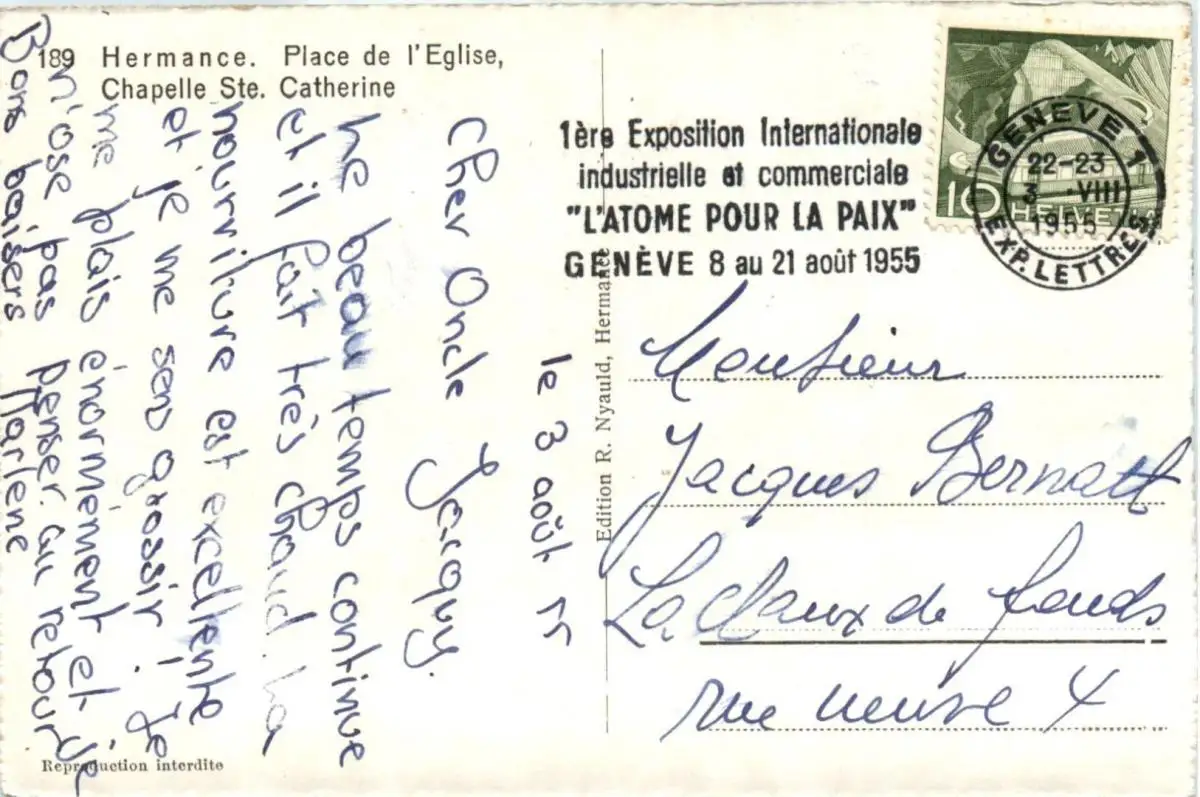 189 Hermance. Place de l'Eglise,
Chapelle Ste. Catherine
le 3 août 55
Cher Oncle Jacquy.
Le beau temps continue
et il fait très chaud. La
nourriture est excellente
et je me sens grossir ! Je
me plais énormément et je
n'ose pas penser au retour.
Bons baisers Marlène
Edition R. Nyauld, Hermance
Reproduction interdite
1ère Exposition Internationale
industrielle et commerciale
"L'ATOME POUR LA PAIX"
GENÈVE 8 au 21 août 1955
10 HELVETIA
GENÈVE 1
22-23
3 -VIII
1955
EXP. LETTRES
Monsieur
Jacques Bernatt
La Chaux de fonds
rue neuve 4